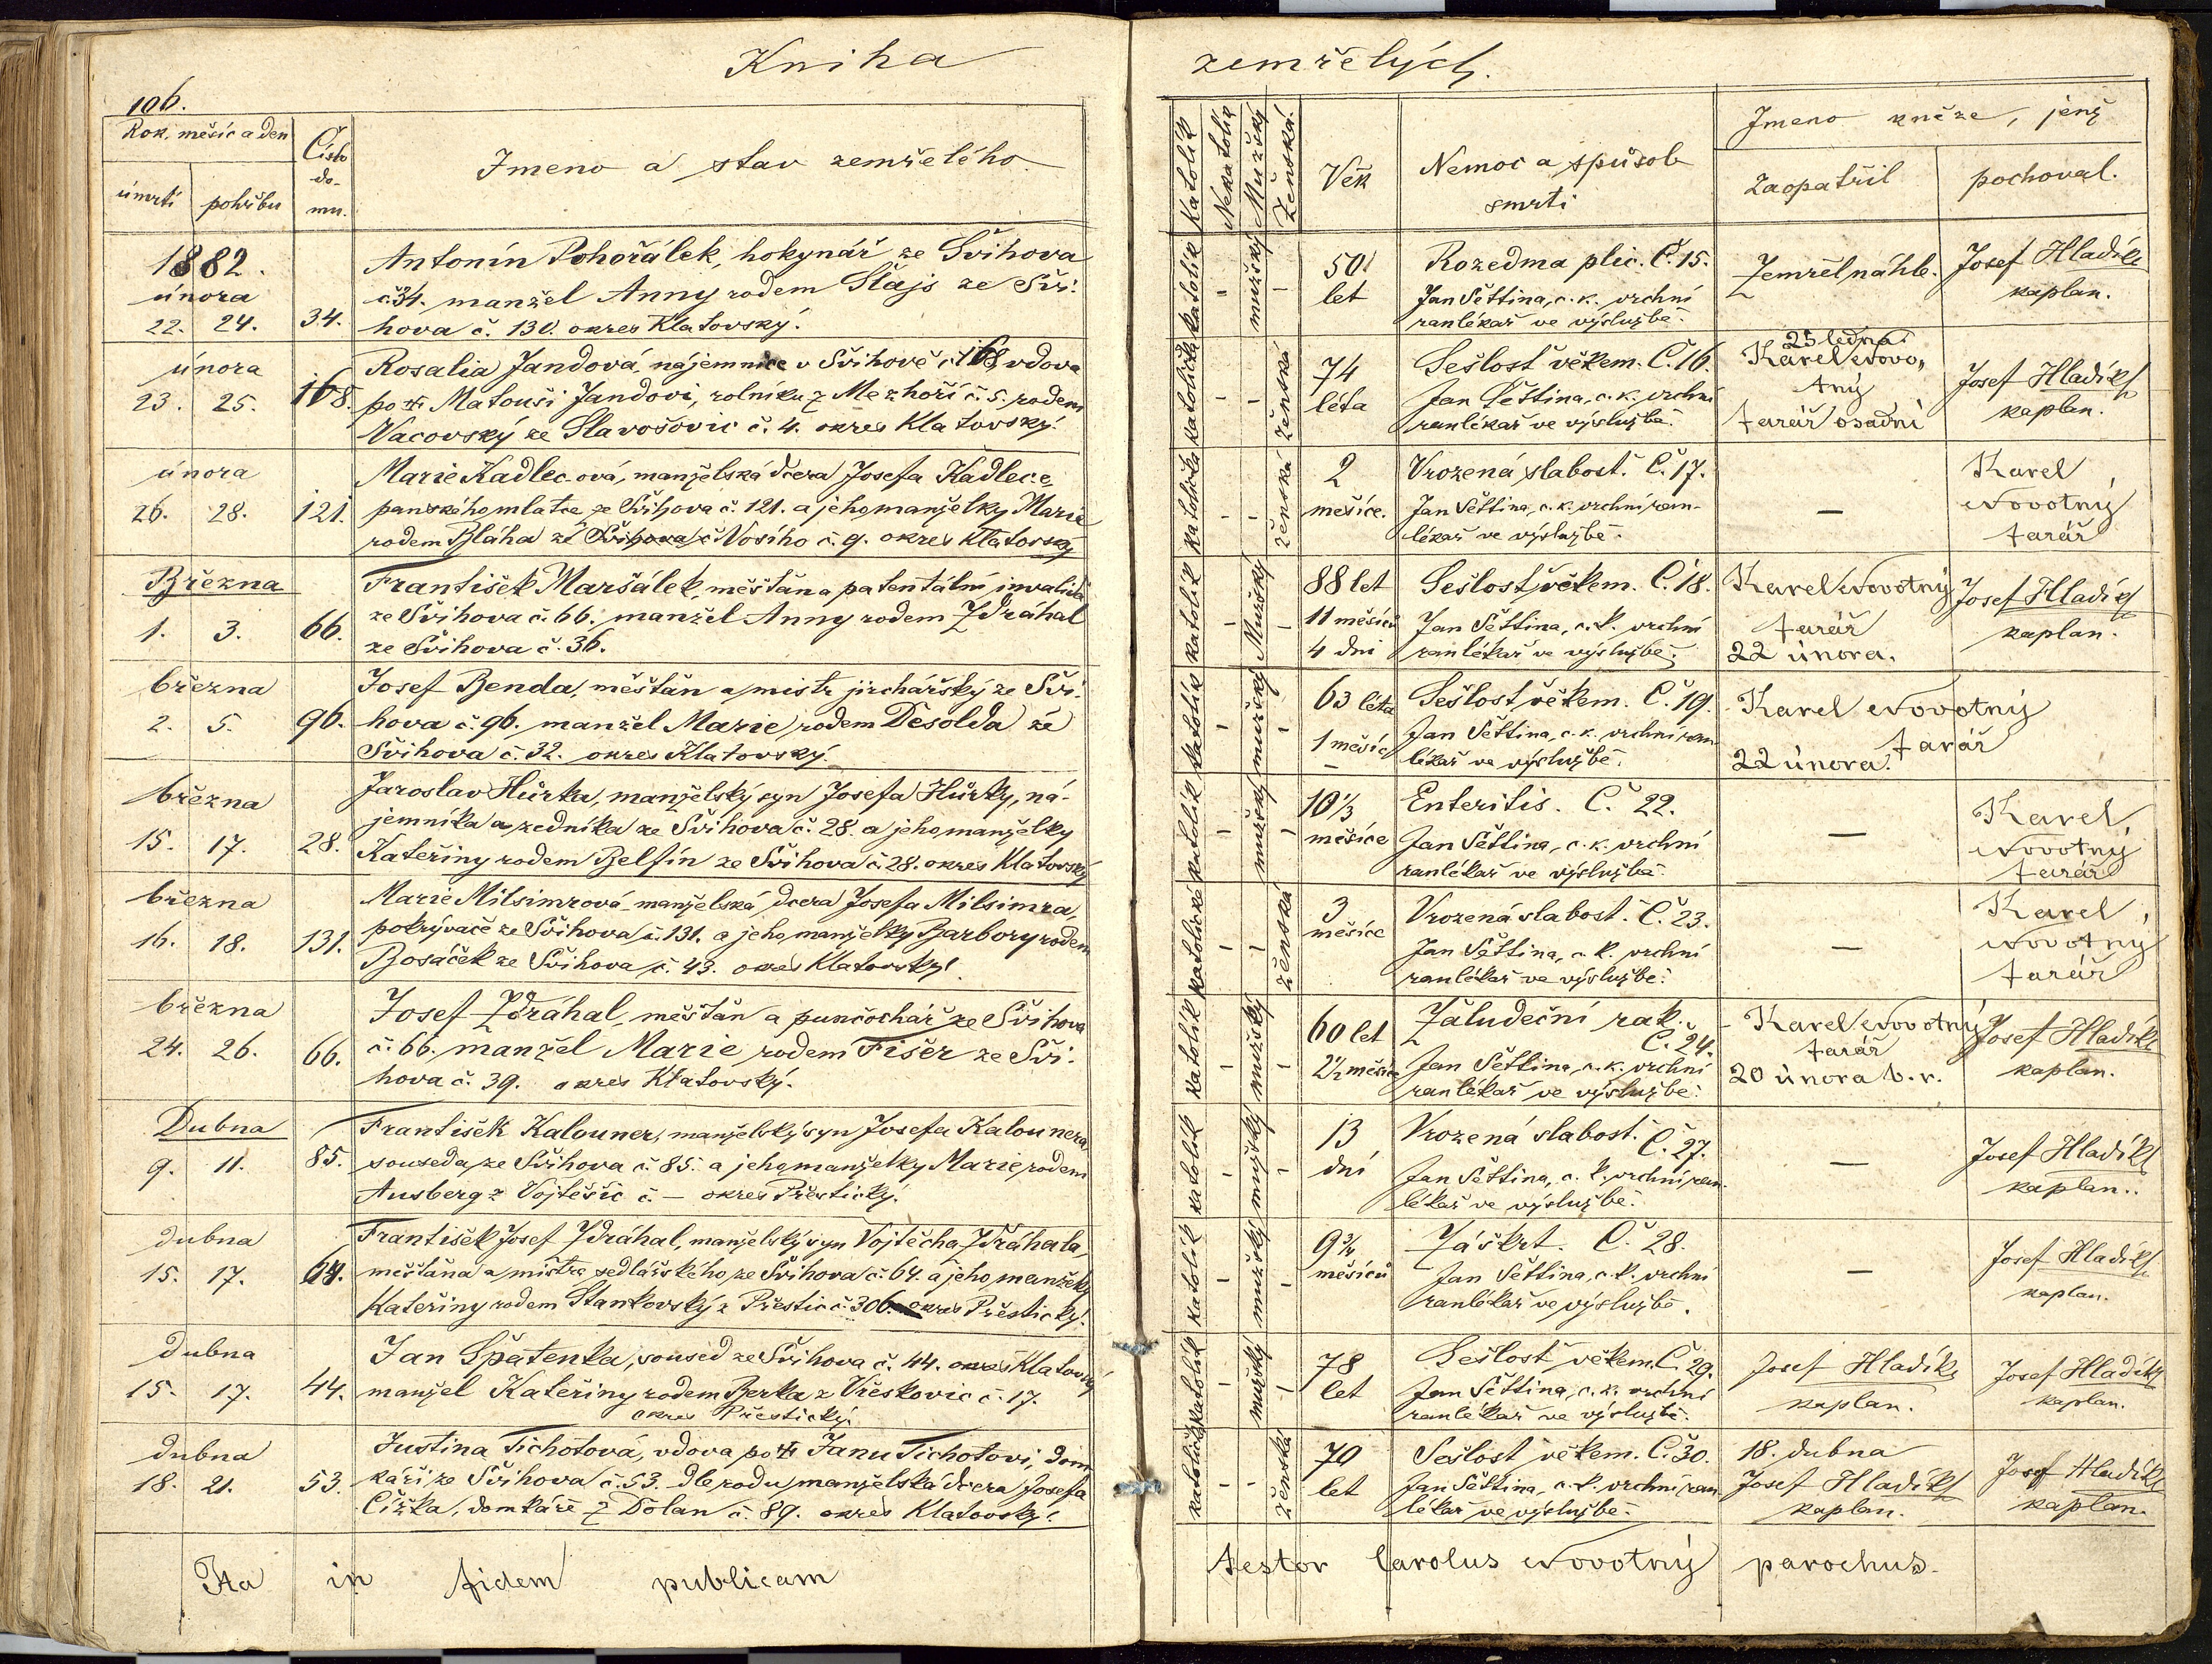 Kniha
zemřelých.
106.
Rok, měsíc a den
úmrtí
pohřbu
Číslo
do-
mu.
Jmeno a stav zemřelého.
Katolík
Nekatolík
Mužský
Ženská.
Věk
Nemoc a způsob
smrti
Jmeno kněze, jenž
zaopatřil
pochoval.
1882.
února
22. 24. 34.
Antonín Pohořálek, hokynář ze Švihova
č. 34. manžel Anny rodem Stájs ze Švi-
hova č. 130. okres Klatovský.
katolík - mužský -
50 let
Rozedma plic. Č. 15.
Jan Sěttina, c. k. vrchní
ranlékař ve výslužbě.
Zemřel náhle.
Josef Hladík
kaplan.
února
23. 25. 168.
Rosalia Jandová, nájemnice v Švihově č. 168, vdova
po ✝ Matouši Jandovi, rolníku z Mezhoří č. 5. rodem
Vacovský ze Slavošovic č. 4. okres Klatovský.
katolička - - ženská
74
léta
Sešlost věkem. Č. 16.
Jan Sěttina, c. k. vrchní
ranlékař ve výslužbě.
25 ledna
Karel Novo-
tný
farář osadní
Josef Hladík
kaplan.
února
26. 28. 121.
Marie Kadlecová, manželská dcera Josefa Kadlece,
panského mlatce ze Švihova č. 121. a jeho manželky Marie
rodem Bláha ze Švihova č Vosího č. 9. okres Klatovský
katolička - - ženská
2
měsíce.
Vrozená slabost. Č. 17.
Jan Sěttina, c. k. vrchní ran-
lékař ve výslužbě.
—
Karel
Novotný
farář
Března
1. 3. 66.
František Maršálek, měšťan a patentální invalida
ze Švihova č. 66. manžel Anny rodem Zdráhal
ze Švihova č. 36.
katolík - Mužský -
88 let
11 měsíců
4 dni
Sešlost věkem. Č. 18.
Jan Sěttina, c. k. vrchní
ranlékař ve výslužbě.
Karel Novotný
farář
22 února.
Josef Hladík
kaplan.
března
2. 5. 96.
Josef Benda, měšťan a mistr jirchářský ze Švi-
hova č. 96. manžel Marie rodem Desolda ze
Švihova č. 32. okres Klatovský.
katolík - mužský -
63 léta
1 měsíc
Sešlost věkem. Č. 19.
Jan Sěttina, c. k. vrchní ran-
lékař ve výslužbě.
Karel Novotný
farář
22 února.
března
15. 17. 28.
Jaroslav Hůrka, manželský syn Josefa Hůrky, ná-
jemníka a zedníka ze Švihova č. 28. a jeho manželky
Kateřiny rodem Belfín ze Švihova č. 28. okres Klatovský
katolík - mužský -
10 1/3
měsíce
Enteritis. Č. 22.
Jan Sěttina, c. k. vrchní
ranlékař ve výslužbě.
—
Karel
Novotný
farář
března
16. 18. 131.
Marie Milsimrová, manželská dcera Josefa Milsimra,
pokrývače ze Švihova č. 131. a jeho manželky Barbory rodem
Bosáček ze Švihova č. 43. okres Klatovský.
katolické - - ženská
3
měsíce
Vrozená slabost. Č. 23.
Jan Sěttina, c. k. vrchní
ranlékař ve výslužbě.
—
Karel
Novotný
farář
března
24. 26. 66.
Josef Zdráhal, měšťan a punčochář ze Švihova
č. 66. manžel Marie rodem Fišer ze Švi-
hova č. 39. okres Klatovský.
katolík - mužský -
60 let
2 1/2 měsíce
Žaludeční rak.
Č. 24.
Jan Sěttina, c. k. vrchní
ranlékař ve výslužbě.
Karel Novotný
farář
20 února b. r.
Josef Hladík
kaplan.
Dubna
9. 11. 85.
František Kalouner, manželský syn Josefa Kalounera
souseda ze Švihova č. 85. a jeho manželky Marie, rodem
Ausberg z Vojtěšic č. — okres Přestický.
katolík - mužský -
13
dní
Vrozená slabost. Č. 27.
Jan Sěttina, c. k. vrchní ran-
lékař ve výslužbě.
—
Josef Hladík
kaplan.
dubna
15. 17. 64.
František Josef Zdráhal, manželský syn Vojtěcha Zdráhala,
měšťana a mistra sedlářského ze Švihova č. 64. a jeho manželky
Kateřiny rodem Stankovský z Přestic č. 306. okres Přestický.
katolík - mužský -
9 3/4
měsíců
Záškrt. Č. 28.
Jan Sěttina, c. k. vrchní
ranlékař ve výslužbě.
—
Josef Hladík
kaplan.
dubna
15. 17. 44.
Jan Špátenka, soused ze Švihova č. 44. okres Klatovský
manžel Kateřiny rodem Berka z Vřeskovic č. 17.
okres Přestický.
katolík - mužský -
78
let
Sešlost věkem. Č. 29.
Jan Sěttina, c. k. vrchní
ranlékař ve výslužbě.
Josef Hladík
kaplan.
Josef Hladík
kaplan.
dubna
18. 21. 53.
Justina Tichotová, vdova po ✝ Janu Tichotovi, dom-
káři ze Švihova č. 53. dle rodu manželská dcera Josefa
Čížka, domkáře z Dolan č. 89. okres Klatovský.
katolička - - ženská
70
let
Sešlost věkem. Č. 30.
Jan Sěttina, c. k. vrchní ran-
lékař ve výslužbě.
18. dubna
Josef Hladík
kaplan.
Josef Hladík
kaplan.
Ita in fidem publicam
testor Carolus Novotný parochus.